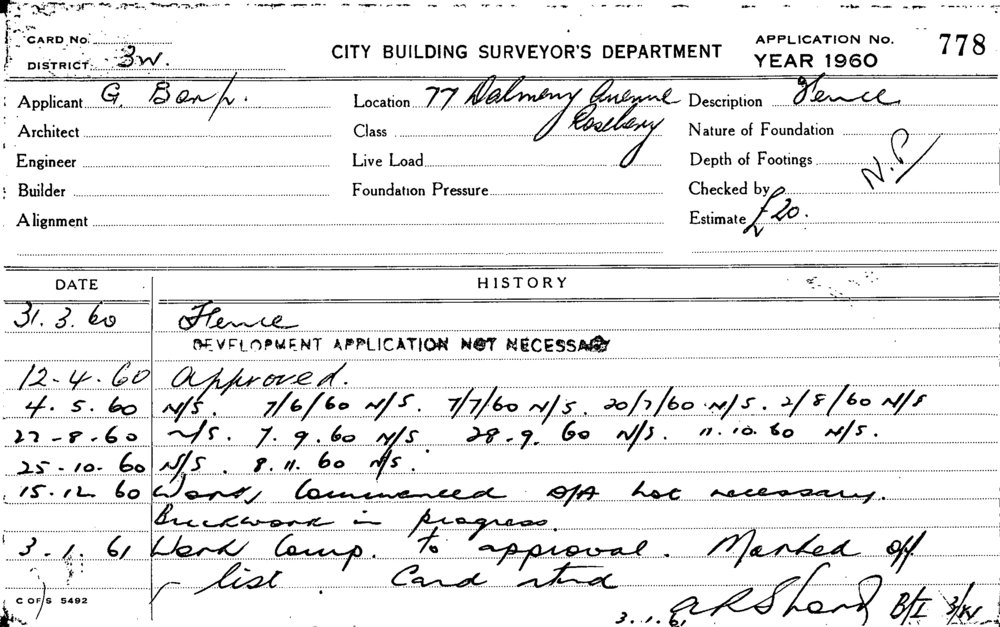 CARD No.
DISTRICT 3W.
CITY BUILDING SURVEYOR'S DEPARTMENT
APPLICATION No. 778
YEAR 1960
Applicant G.
Location 77 Dalmeny Avenue
Rosebery
Description Fence
Architect
Class
Nature of Foundation
Engineer
Live Load
Depth of Footings
N.P
Builder
Foundation Pressure
Checked by
Alignment
Estimate £20.
DATE HISTORY
31.3.60 Fence
DEVELOPMENT APPLICATION NOT NECESSARY
12-4-60 Approved.
4.5.60 N/S. 7/6/60 N/S. 7/7/60 N/S. 20/7/60 N/S. 2/8/60 N/S
22-8-60 N/S. 7.9.60 N/S 28-9.60 N/S. 11.10.60 N/S.
25-10-60 N/S. 8.11.60 N/S.
15.12.60 Work Commenced D/A not necessary.
Brickwork in progress.
3.1.61 Work Comp. to approval. Marked off
list. Card
C OF S 5492
3.1.61 B/I 3/W